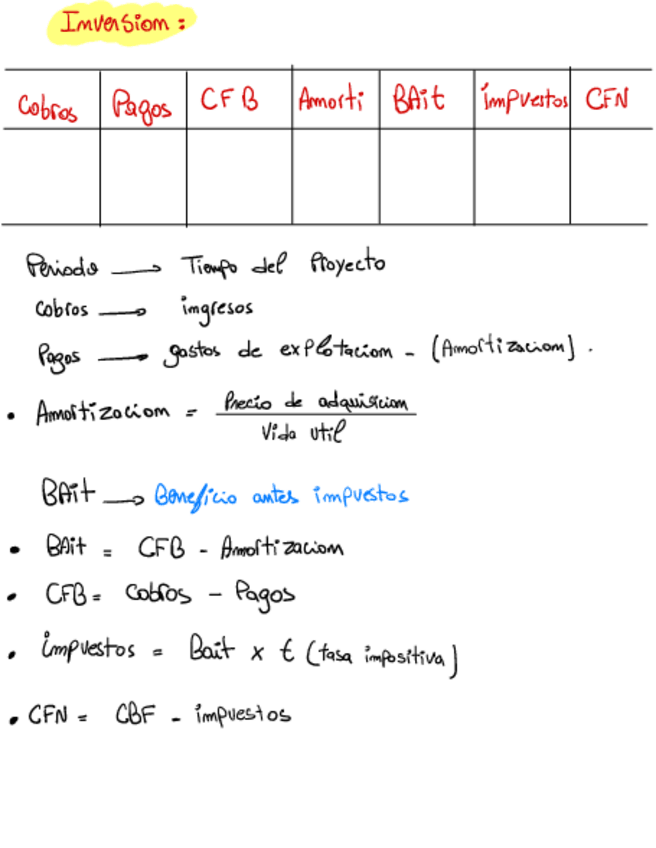 Inversion:
Cobros Pagos CFB Amorti BAit impuestos CFN
Periodo → Tiempo del Proyecto
Cobros → ingresos
Pagos → gastos de explotacion - (Amortizacion).
• Amortizacion = Precio de adquisicion
Vida util
BAit → Beneficio antes impuestos
• BAit = CFB - Amortizacion
• CFB = Cobros - Pagos
• impuestos = Bait x t (tasa impositiva)
• CFN = CBF - impuestos